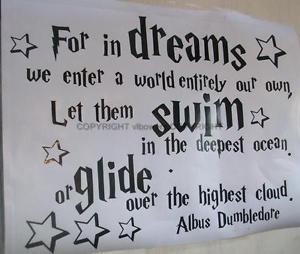 For in dreams
we enter a world entirely our own,
Let them swim
in the deepest ocean.
or glide
over the highest cloud.
Albus Dumbledore
COPYRIGHT
COPYRIGHT